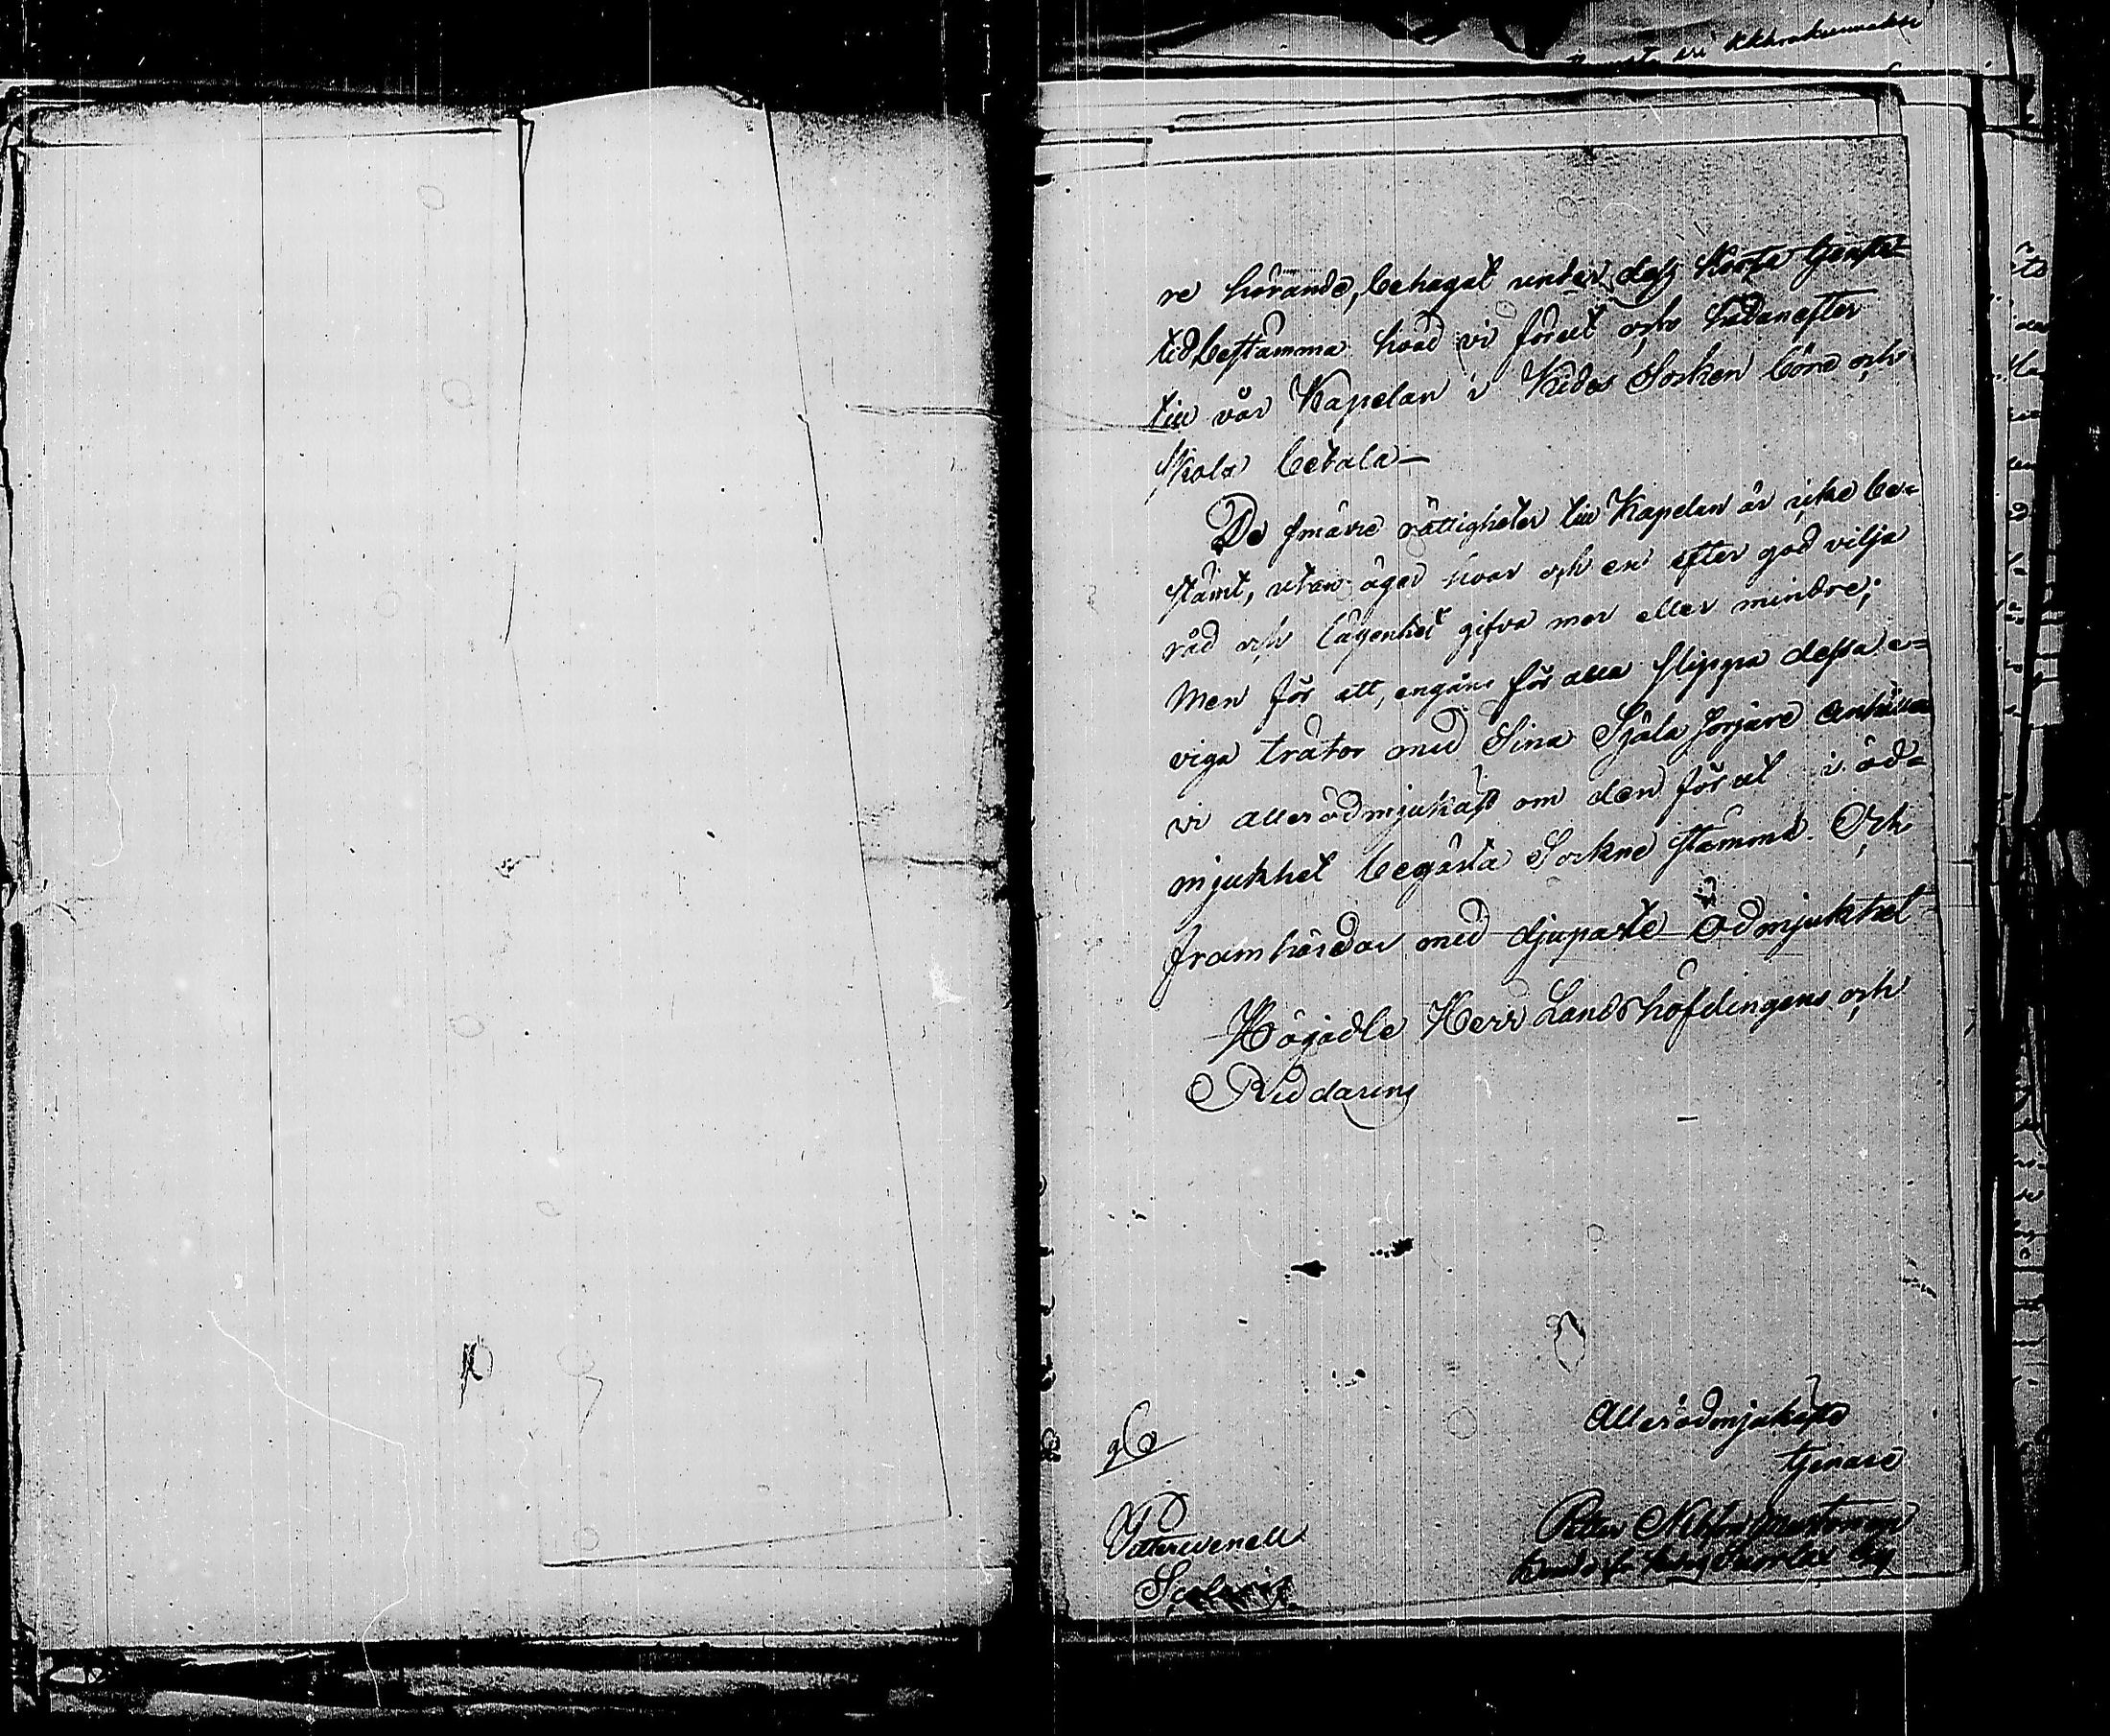 re hörande, behagat under dess korta tjenste-
tid bestämma hvad vi förut och hädanefter
till vår Kapelan i Sorken böra och
skola betala —
De smärre rättigheter till Kapelan är icke be-
stämt, utan äger hvar och en efter god vilja
råd och lägenhet gifva mer eller mindre;
Men för att, engång för alla slippa dessa e-
viga trätor med Sina Själa Sörjare anhålla
vi allerödmjukast om den förut i öd-
mjukhet begärta Sockne stämma. Och
framhärdar med djupaste ödmjukhet
Högädle Herr Landshöfdingens och
Riddarens
Allerödmjukaste
tjenare
Petter